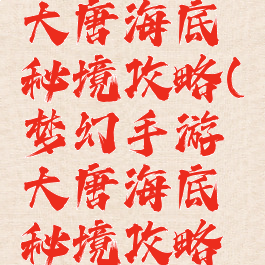 大唐海底
秘境攻略(
梦幻手游
大唐海底
秘境攻略